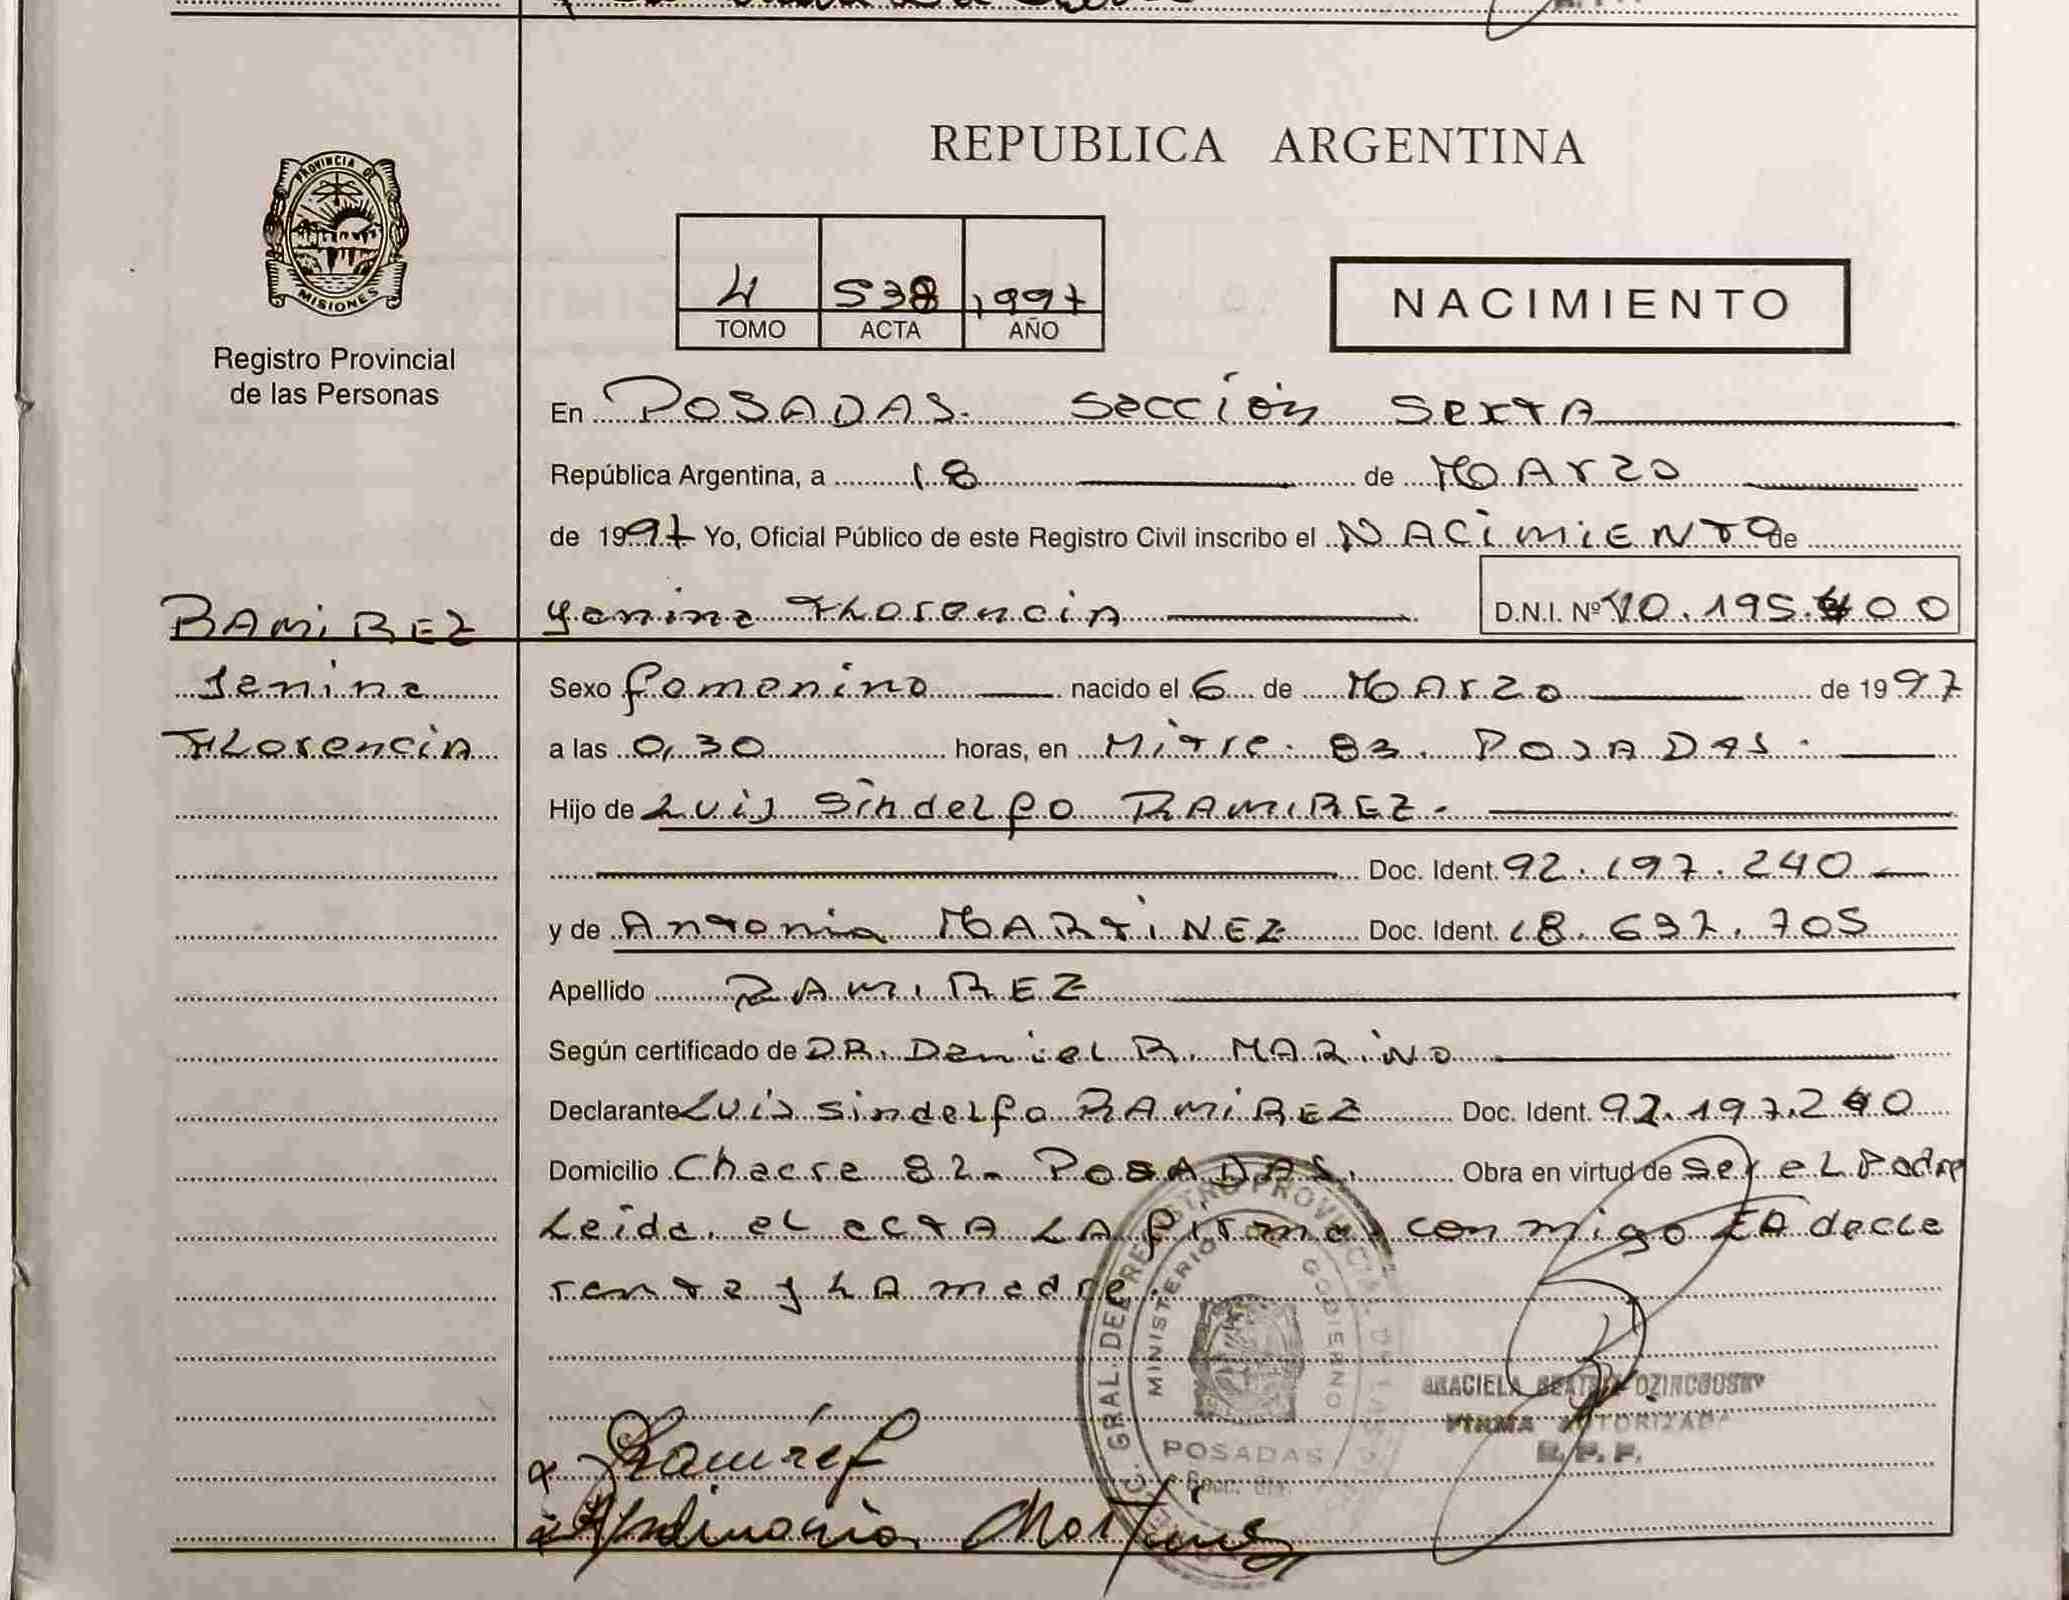 REPUBLICA ARGENTINA
PROVINCIA DE
MISIONES
Registro Provincial
de las Personas
4 538 1997
TOMO ACTA AÑO
NACIMIENTO
En POSADAS. Sección Sexta
República Argentina, a 18 de MARZO
de 1997 Yo, Oficial Público de este Registro Civil inscribo el NACIMIENTO de
RAMIREZ
Yanina Florencia D.N.I. Nº 40.195.400
Yanina
Sexo femenino nacido el 6 de MARZO de 1997
Florencia
a las 0,30 horas, en Mitre. 83. POSADAS.
Hijo de Luis Sindelfo RAMIREZ.
Doc. Ident. 92.197.240
y de Antonia MARTINEZ Doc. Ident. 18.637.705
Apellido RAMIREZ
Según certificado de DR. Daniel R. MARINO
Declarante Luis Sindelfo RAMIREZ Doc. Ident. 92.197.240
Domicilio Chacra 82- POSADAS. Obra en virtud de Ser el Padre
Leida. el acta la firman con migo EA decla
rante y la madre.
GRAL. DEL REGISTRO PROVINCIAL DE LAS
MINISTERIO DE GOBIERNO
POSADAS
GRACIELA BEATRIZ
FIRMA AUTORIZADA
R. P. P.
Ramírez
Martinez